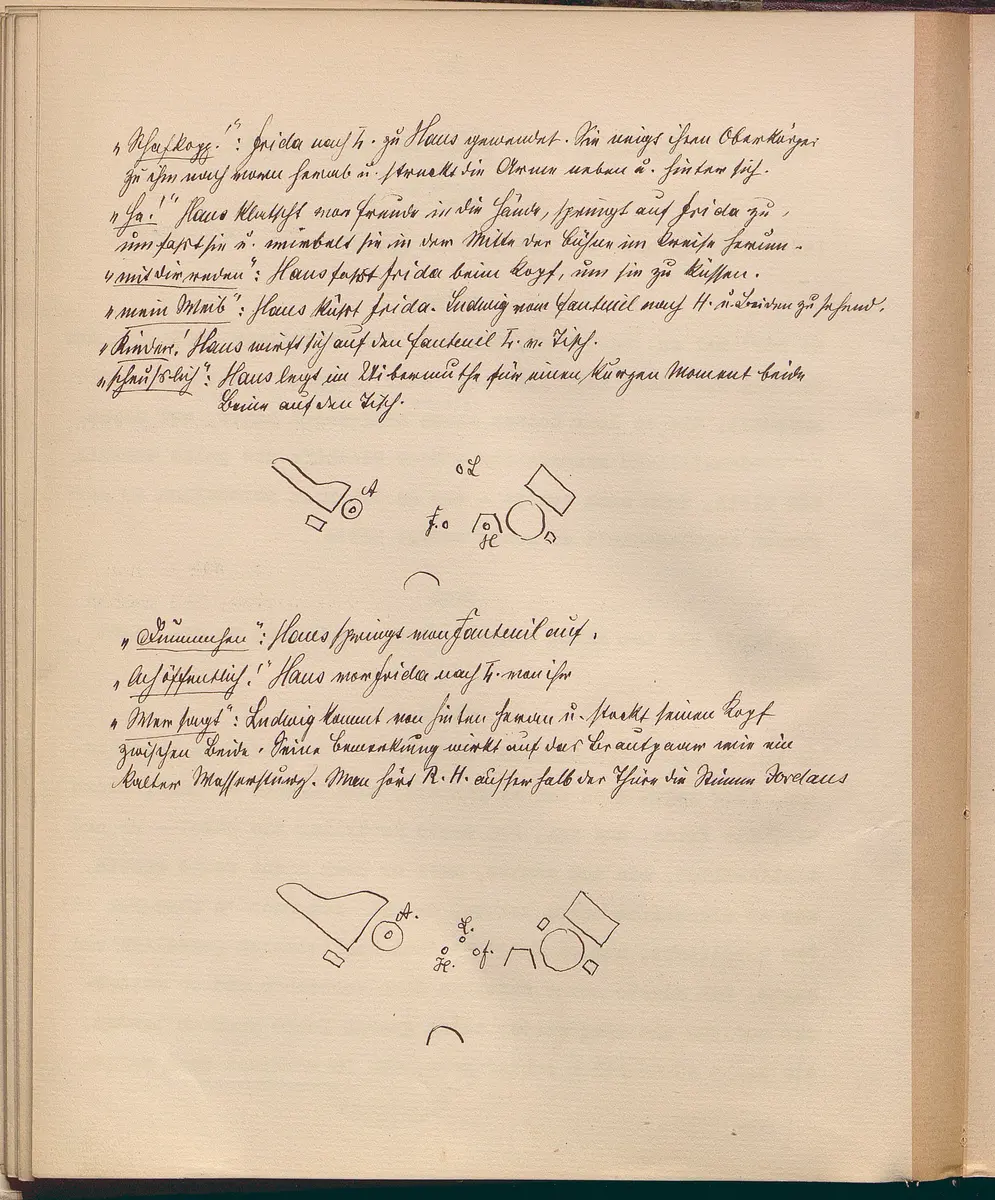 „Schafkopp!“: Frida nach L. zu Hans gewendet. Sie neigt ihren Oberkörper
zu ihm nach vorn herab u. streckt die Arme neben u. hinter sich.
„Ha!“ Hans klatscht vor Freude in die Hände, springt auf Frida zu,
umfasst sie u. wirbelt sie in der Mitte der Bühne im Kreise herum.
„mit dir reden“: Hans fasst Frida beim Kopf, um sie zu küssen.
„mein Weib“: Hans küsst Frida. Ludwig vom Fauteuil nach H. u. Beiden zusehend.
„Kinder! Hans wirft sich auf den Fauteuil L. v. Tisch.
„scheusslich“: Hans legt im Uibermuthe für einen kurzen Moment beide
Beine auf den Tisch.
L
A
F.
H
„Dummchen“: Hans springt vom Fauteuil auf.
„Ach öffentlich!“ Hans vor Frida nach L. von ihr
„Wer sagt“: Ludwig kommt von hinten heran u. steckt seinen Kopf
zwischen Beide. Seine Bemerkung wirkt auf das Brautpaar wie ein
kalter Wassersturz. Man hört R. H. ausserhalb der Thüre die Stimme Jordans
A.
L.
H.
F.